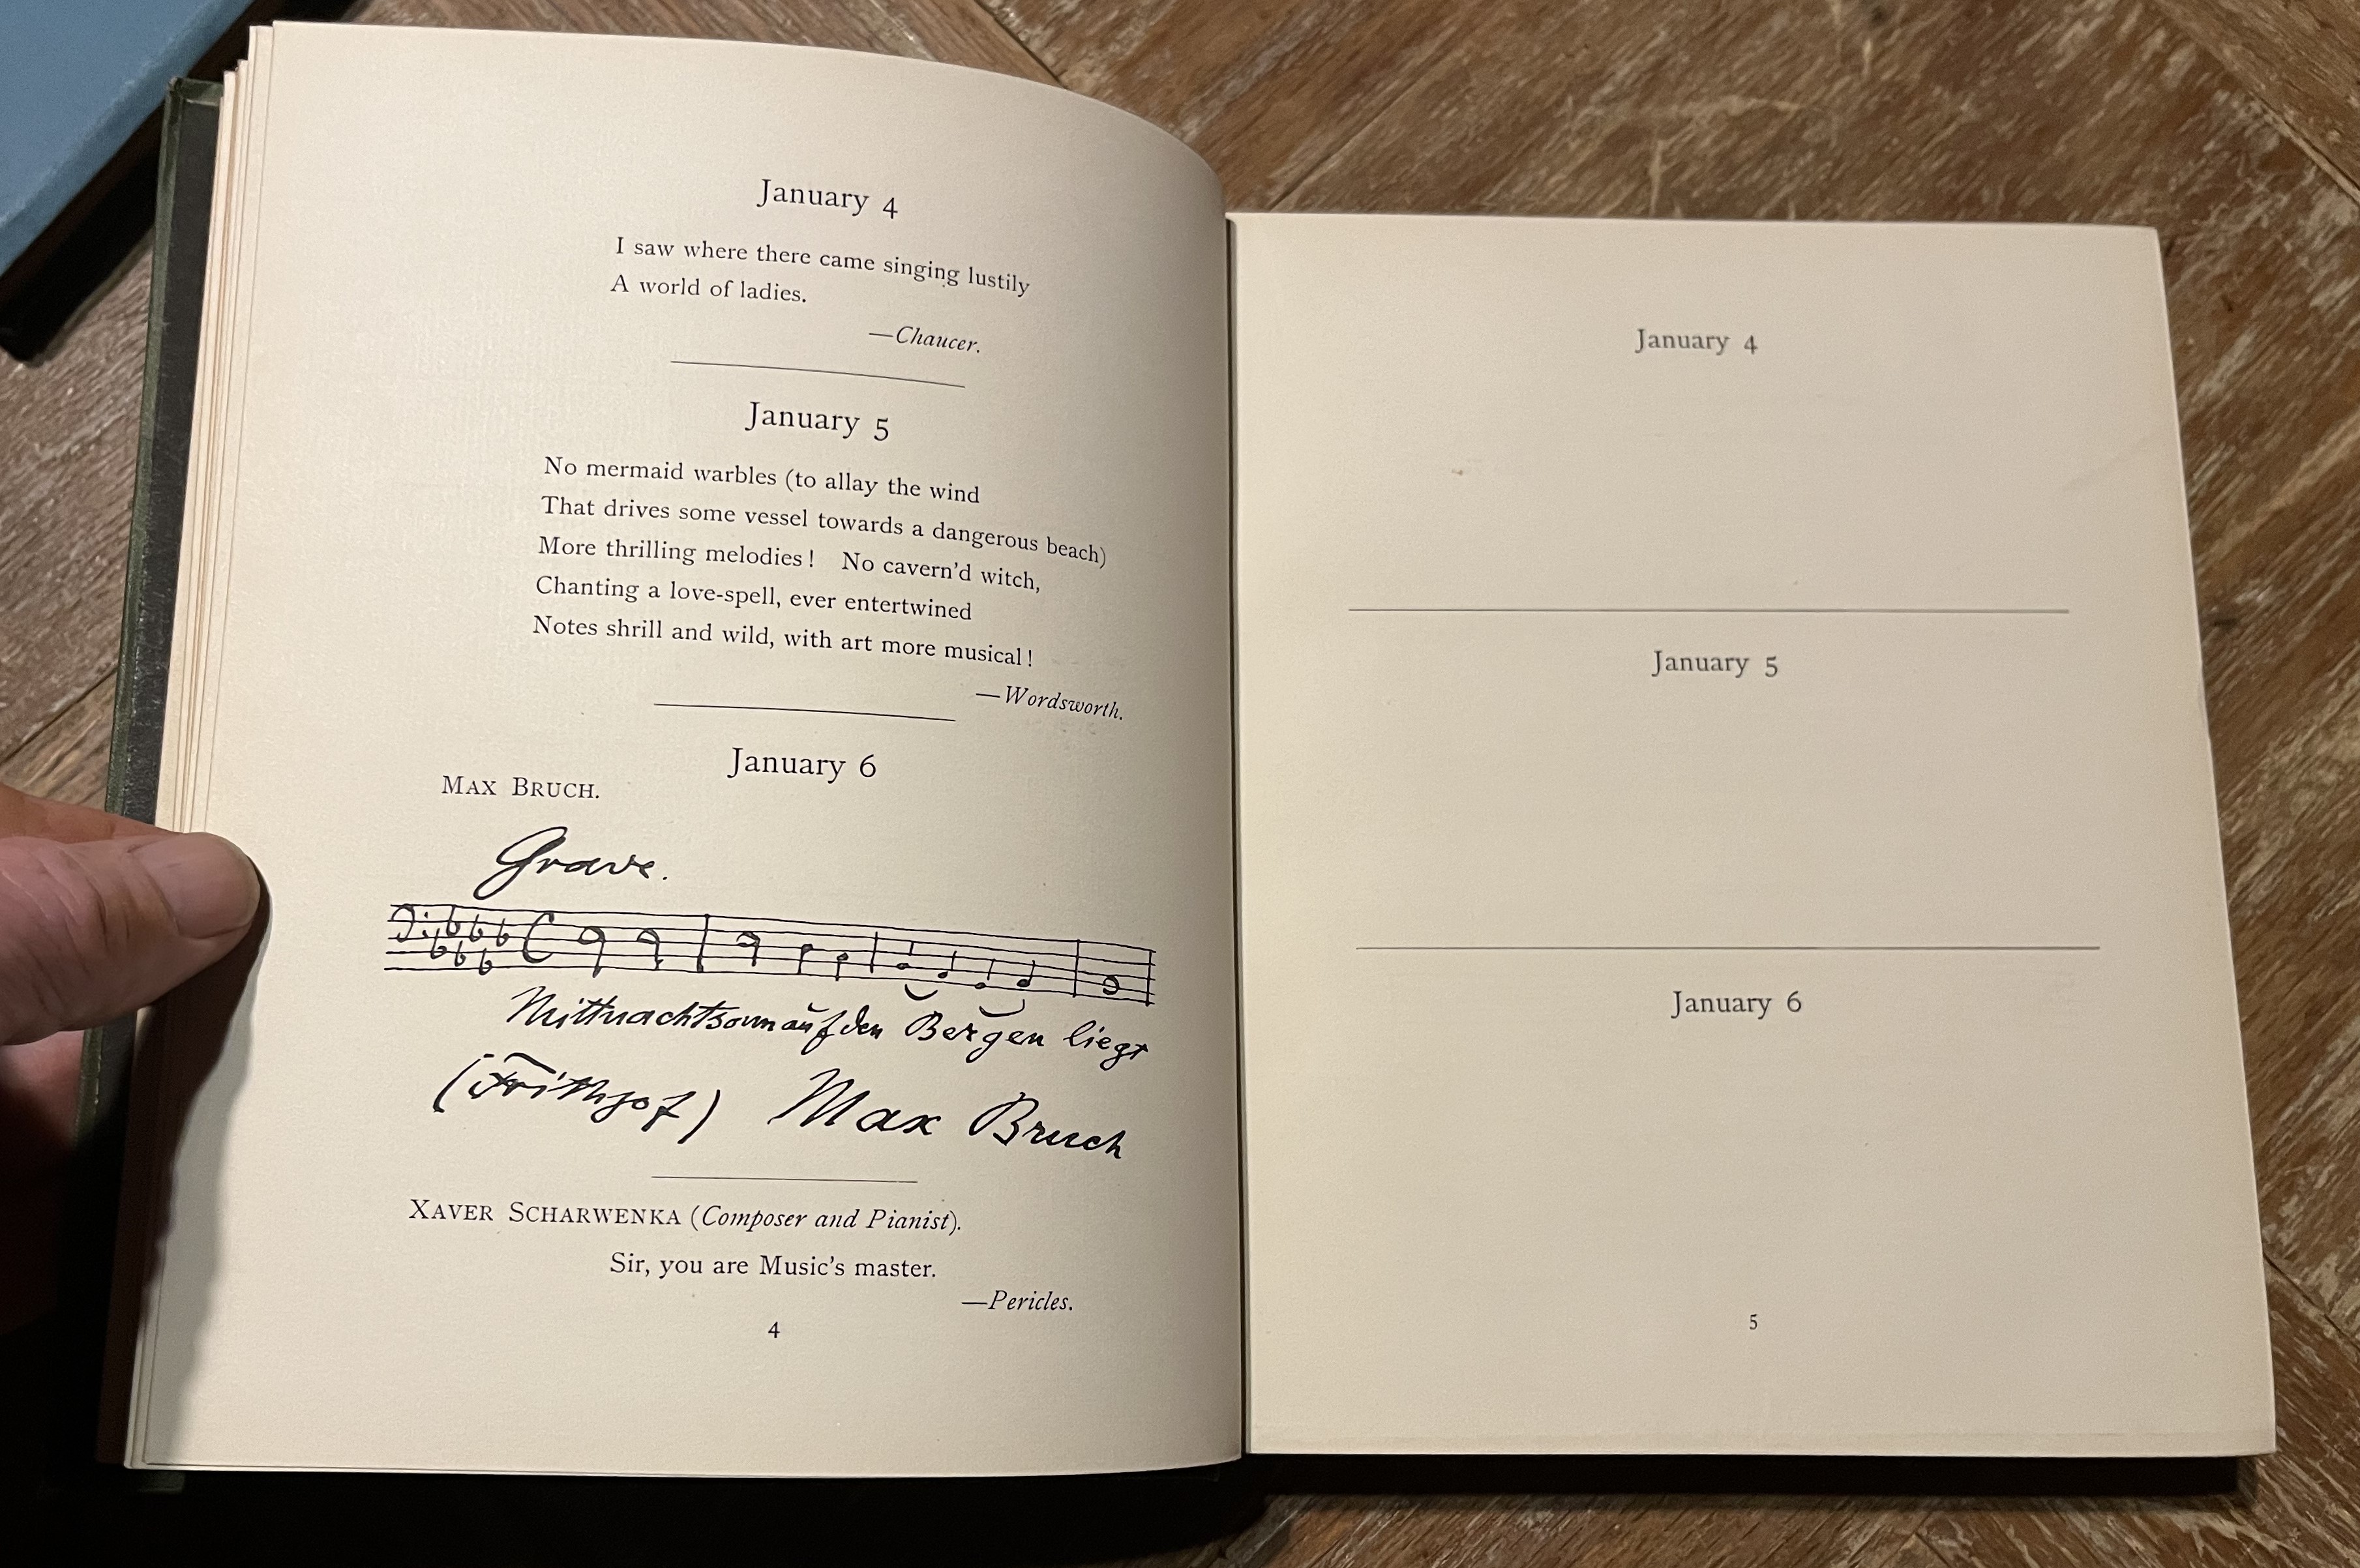 January 4
I saw where there came singing lustily
A world of ladies.
—Chaucer.
January 5
No mermaid warbles (to allay the wind
That drives some vessel towards a dangerous beach)
More thrilling melodies! No cavern'd witch,
Chanting a love-spell, ever entertwined
Notes shrill and wild, with art more musical!
—Wordsworth.
January 6
MAX BRUCH.
Grave.
Mitternachtsonn auf den Bergen liegt
(Frithjof) Max Bruch
XAVER SCHARWENKA (Composer and Pianist).
Sir, you are Music's master.
—Pericles.
4
January 4
January 5
January 6
5